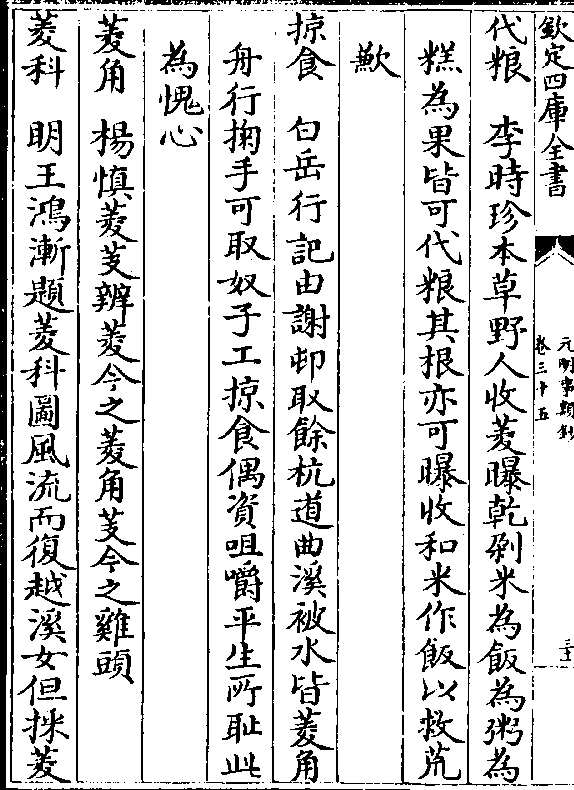 欽定四庫全書
元明事類鈔
卷三十五
三十
代粮　李時珍本草野人收菱曝乾剁米為飯為粥為
糕為果皆可代粮其根亦可曝收和米作飯以救荒
歉
掠食　白岳行記由謝邨取餘杭道曲溪被水皆菱角
舟行掬手可取奴子工掠食偶資咀嚼平生所恥此
為愧心
菱角　楊慎菱芰辨菱今之菱角芰今之雞頭
菱科　明王鴻漸題菱科圖風流而復越溪女但採菱